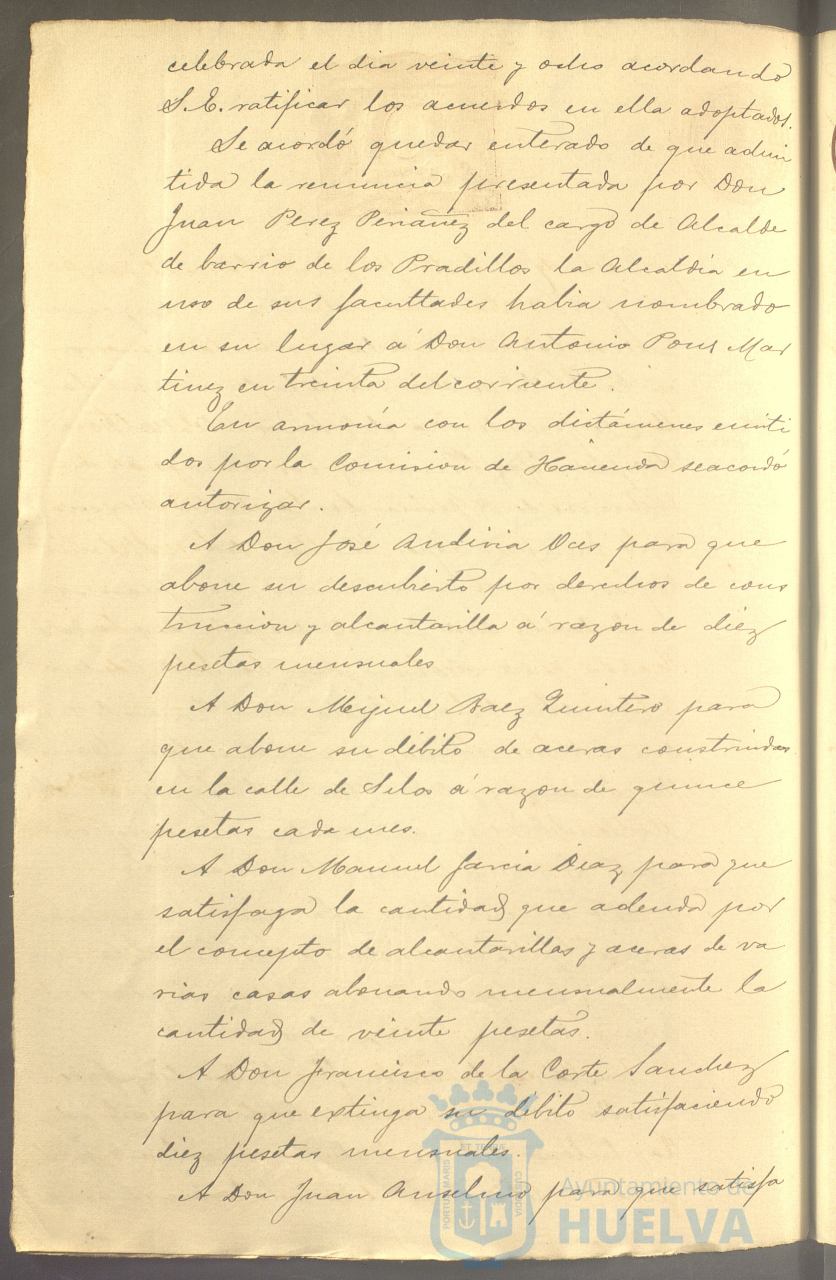 celebrada el dia veinte y ocho acordando
S.E. ratificar los acuerdos en ella adoptados.
Se acordó quedar enterado de que admi
tida la renuncia presentada por Don
Juan Perez Periañez del cargo de Alcalde
de barrio de los Pradillos la Alcaldia en
uso de sus facultades habia nombrado
en su lugar á Don Antonio Pons Mar
tinez en treinta del corriente.
En armonía con los dictámenes emiti
dos por la Comision de Hacienda se acordó
autorizar.
A Don José Andivia para que
abone su descubierto por derechos de cons
truccion y alcantarilla á razon de diez
pesetas mensuales
A Don Miguel Baez Quintero para
que abone su débito de aceras construidas
en la calle de Silos á razon de quince
pesetas cada mes.
A Don Manuel Garcia Diaz para que
satisfaga la cantidad que adeuda por
el concepto de alcantarillas y aceras de va
rias casas abonando mensualmente la
cantidad de veinte pesetas.
A Don Francisco de la Corte Sanchez
para que extinga su débito satisfaciendo
diez pesetas mensuales.
A Don Juan Anselmo para que satisfa
PORTUS MARIS ET TERRE CUSTODIA
Ayuntamiento de
HUELVA